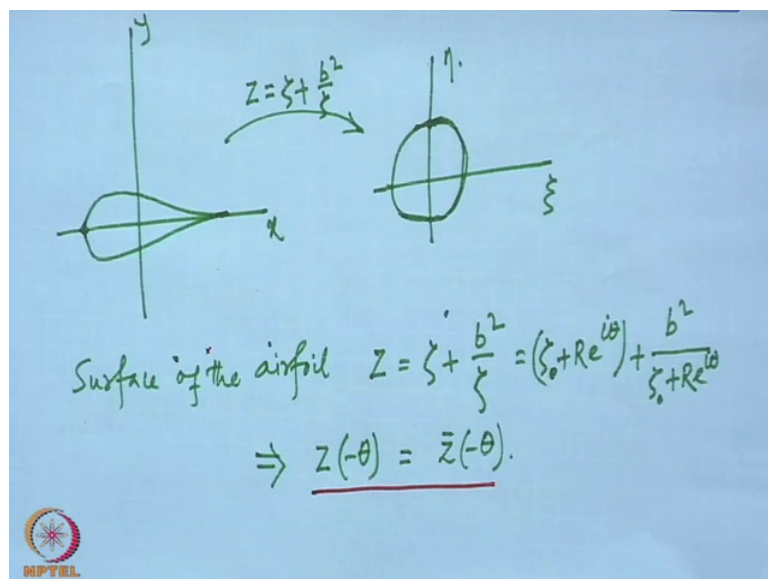 y
η.
z = ζ + b²/ζ
x
ξ
Surface of the airfoil z = ζ + b²/ζ = (ζ₀ + Re^{iθ}) + b²/(ζ₀ + Re^{iθ})
⇒ z(-θ) = z̄(-θ).
NPTEL